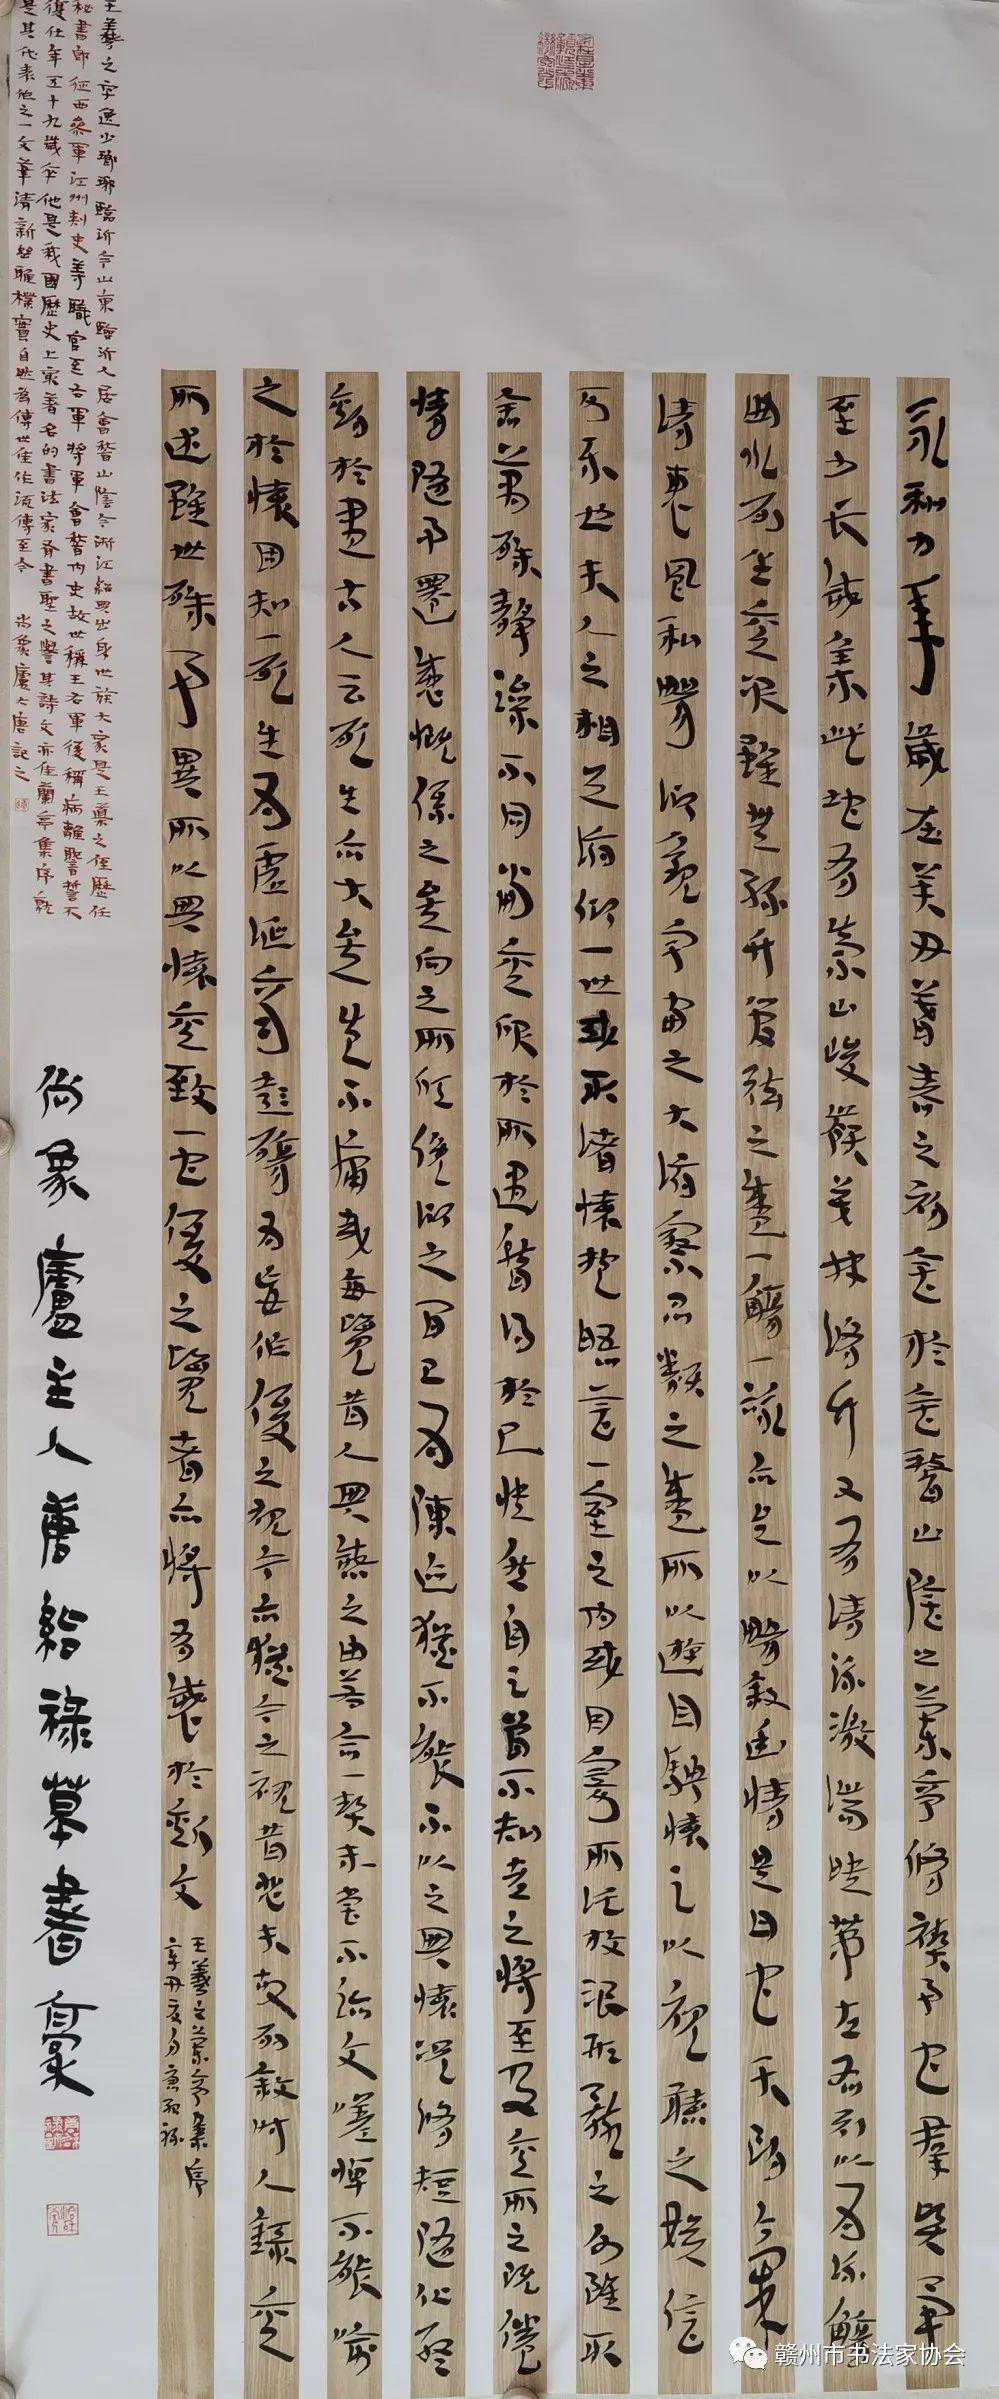 永和九年歲在癸丑暮春之初會於會稽山陰之蘭亭修禊事也羣賢畢
至少長咸集此地有崇山峻嶺茂林修竹又有清流激湍映帶左右引以為流觴
曲水列坐其次雖無絲竹管弦之盛一觴一詠亦足以暢敘幽情是日也天朗氣
清惠風和暢仰觀宇宙之大俯察品類之盛所以遊目騁懷足以視聽之娛信
可樂也夫人之相與俯仰一世或取諸懷抱晤言一室之內或因寄所託放浪形骸之外雖取
舍萬殊靜躁不同當其欣於所遇暫得於己快然自足曾不知老之將至及其所之既倦
情隨事遷感慨係之矣向之所欣俛仰之間已為陳迹猶不能不以之興懷況修短隨化終
期於盡古人云死生亦大矣豈不痛哉每覽昔人興感之由若合一契未嘗不臨文嗟悼不能喻
之於懷固知一死生為虛誕齊彭殤為妄作後之視今亦猶今之視昔悲夫故列敘時人錄其
所述雖世殊事異所以興懷其致一也後之覽者亦將有感於斯文
王羲之蘭亭集序
辛丑夏月唐紹祿
王羲之字逸少瑯琊臨沂今山東臨沂人居會稽山陰今浙江紹興出身世族大家是王導之侄歷任
秘書郎征西參軍江州刺史等職官至右軍將軍會稽內史故世稱王右軍後稱病離職誓不
復仕年五十九歲卒他是我國歷史上最著名的書法家有書聖之譽其詩文亦佳蘭亭集序就
是其代表作之一文筆清新雅樸實自然為傳世佳作流傳至今 尚象廬大唐記之
尚象廬主人唐紹祿草書稿
赣州市书法家协会